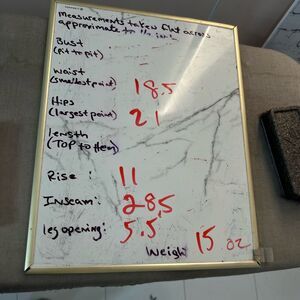 measurements taken flat across
approximate to the inch
Bust
(Pit to pit)
Waist 18.5
(Smallest point)
Hips 21
(largest point)
length
(TOP to Hem)
Rise: 11
Inseam: 28.5
leg opening: 5.5
Weigh 15 oz